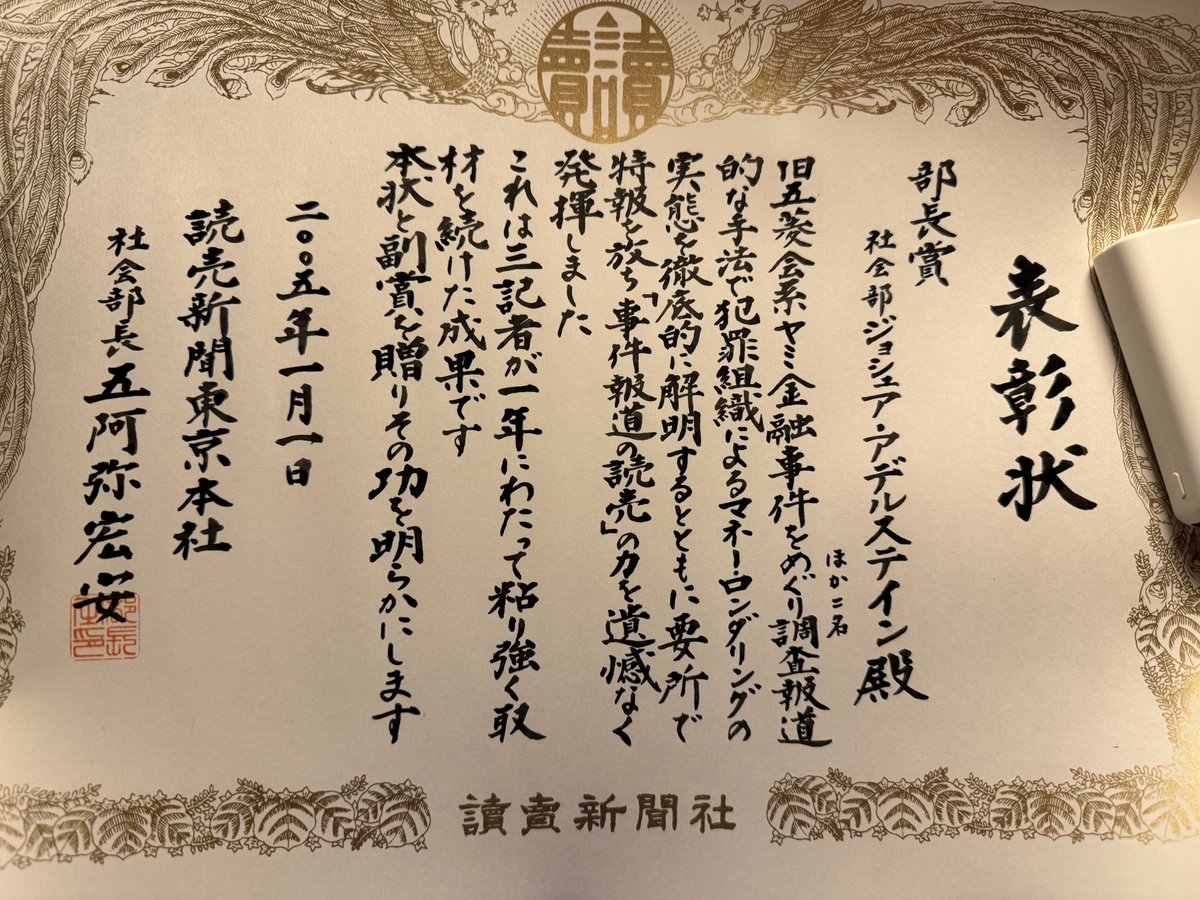 讀賣
表彰状
部長賞
社会部ジョシュア・アデルステイン殿
ほか二名
旧五菱会系ヤミ金融事件をめぐり調査報道
的な手法で犯罪組織によるマネー・ロンダリングの
実態を徹底的に解明するとともに要所で
特報を放ち「事件報道の読売」の力を遺憾なく
発揮しました
これは三記者が一年にわたって粘り強く取
材を続けた成果です
本状と副賞を贈りその功を明らかにします
二〇〇五年一月一日
読売新聞東京本社
社会部長 五阿弥宏安
讀賣新聞社